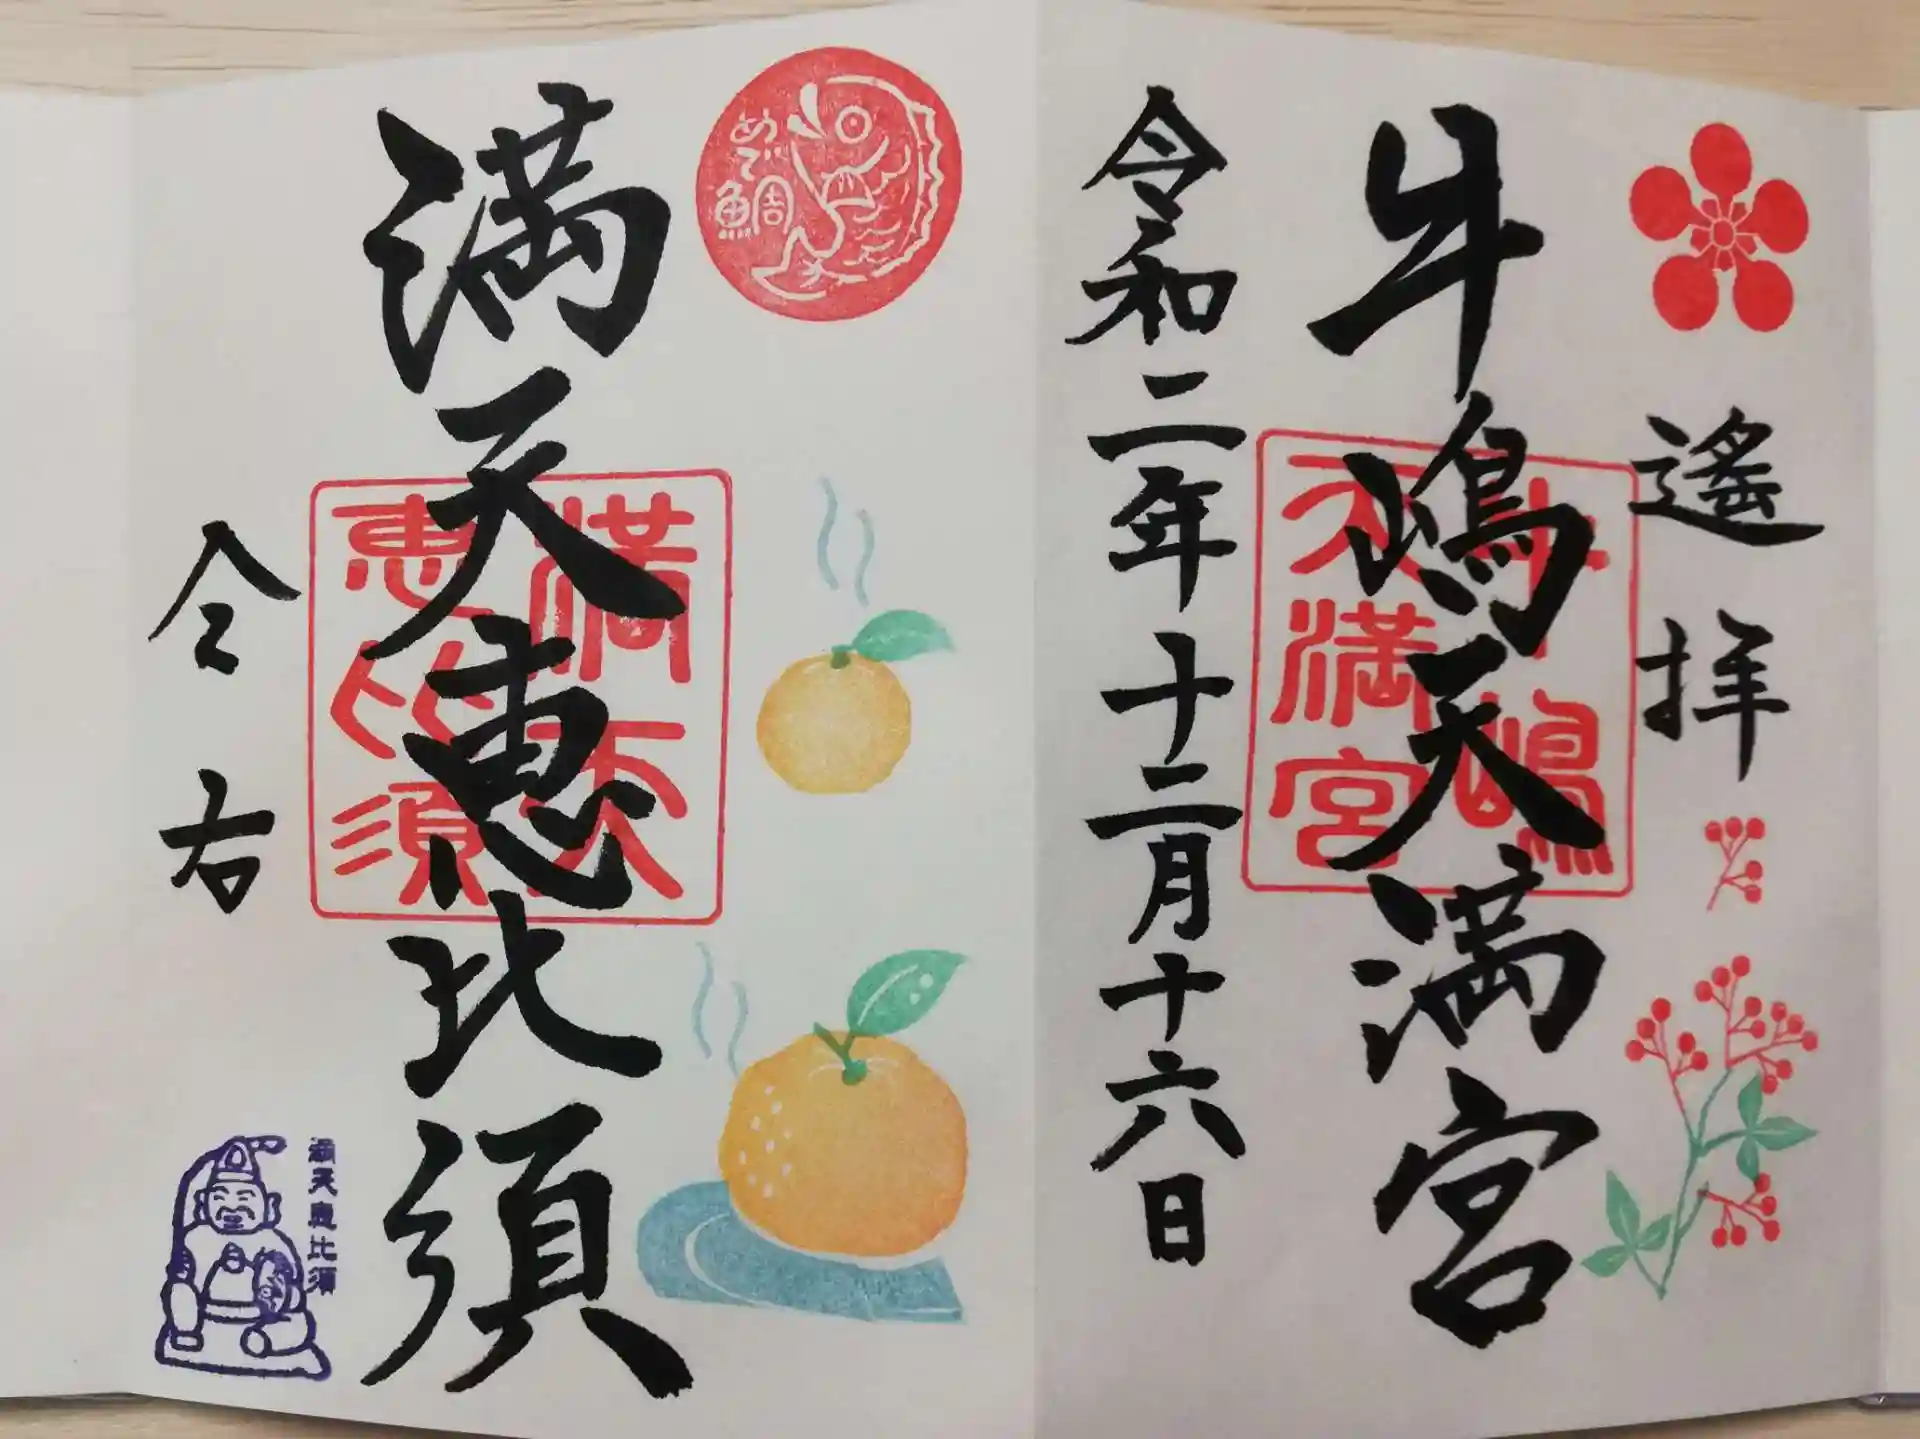 遙拝
牛嶋天満宮
牛嶋天満宮
令和二年十二月十六日
めで鯛
満天恵比須
満天恵比須
仝右
満天恵比須